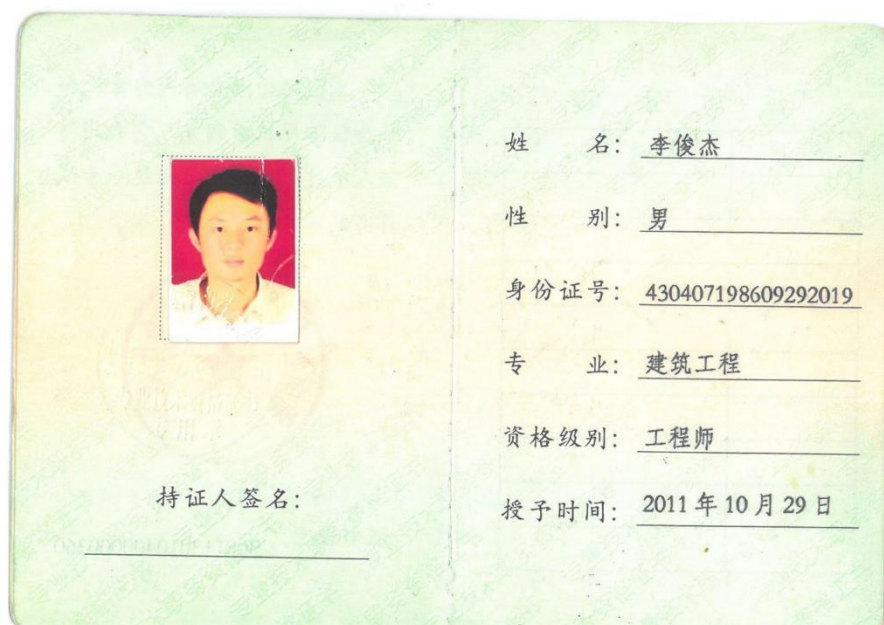 持证人签名：
姓 名： 李俊杰
性 别： 男
身份证号： 430407198609292019
专 业： 建筑工程
资格级别： 工程师
授予时间： 2011 年 10 月 29 日